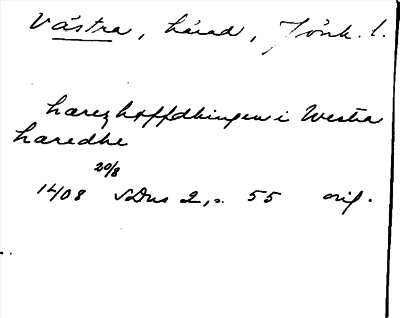 Västra, härad, Jönk. l.
harezhoffdhingen i Westra
haredhe
20/8
1408 SDns 2, s. 55 orig.